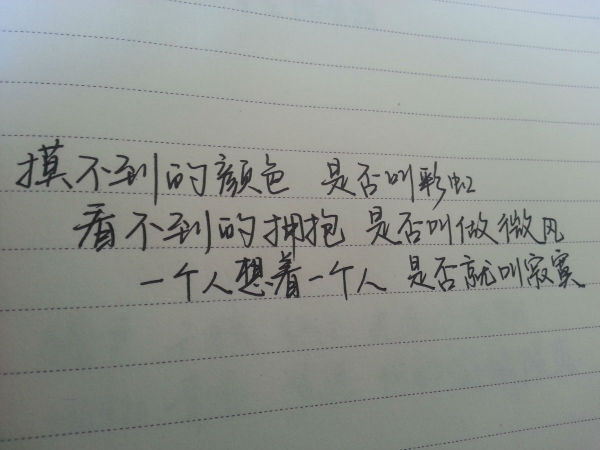 摸不到的颜色 是否叫彩虹
看不到的拥抱 是否叫做微风
一个人想着一个人 是否就叫寂寞